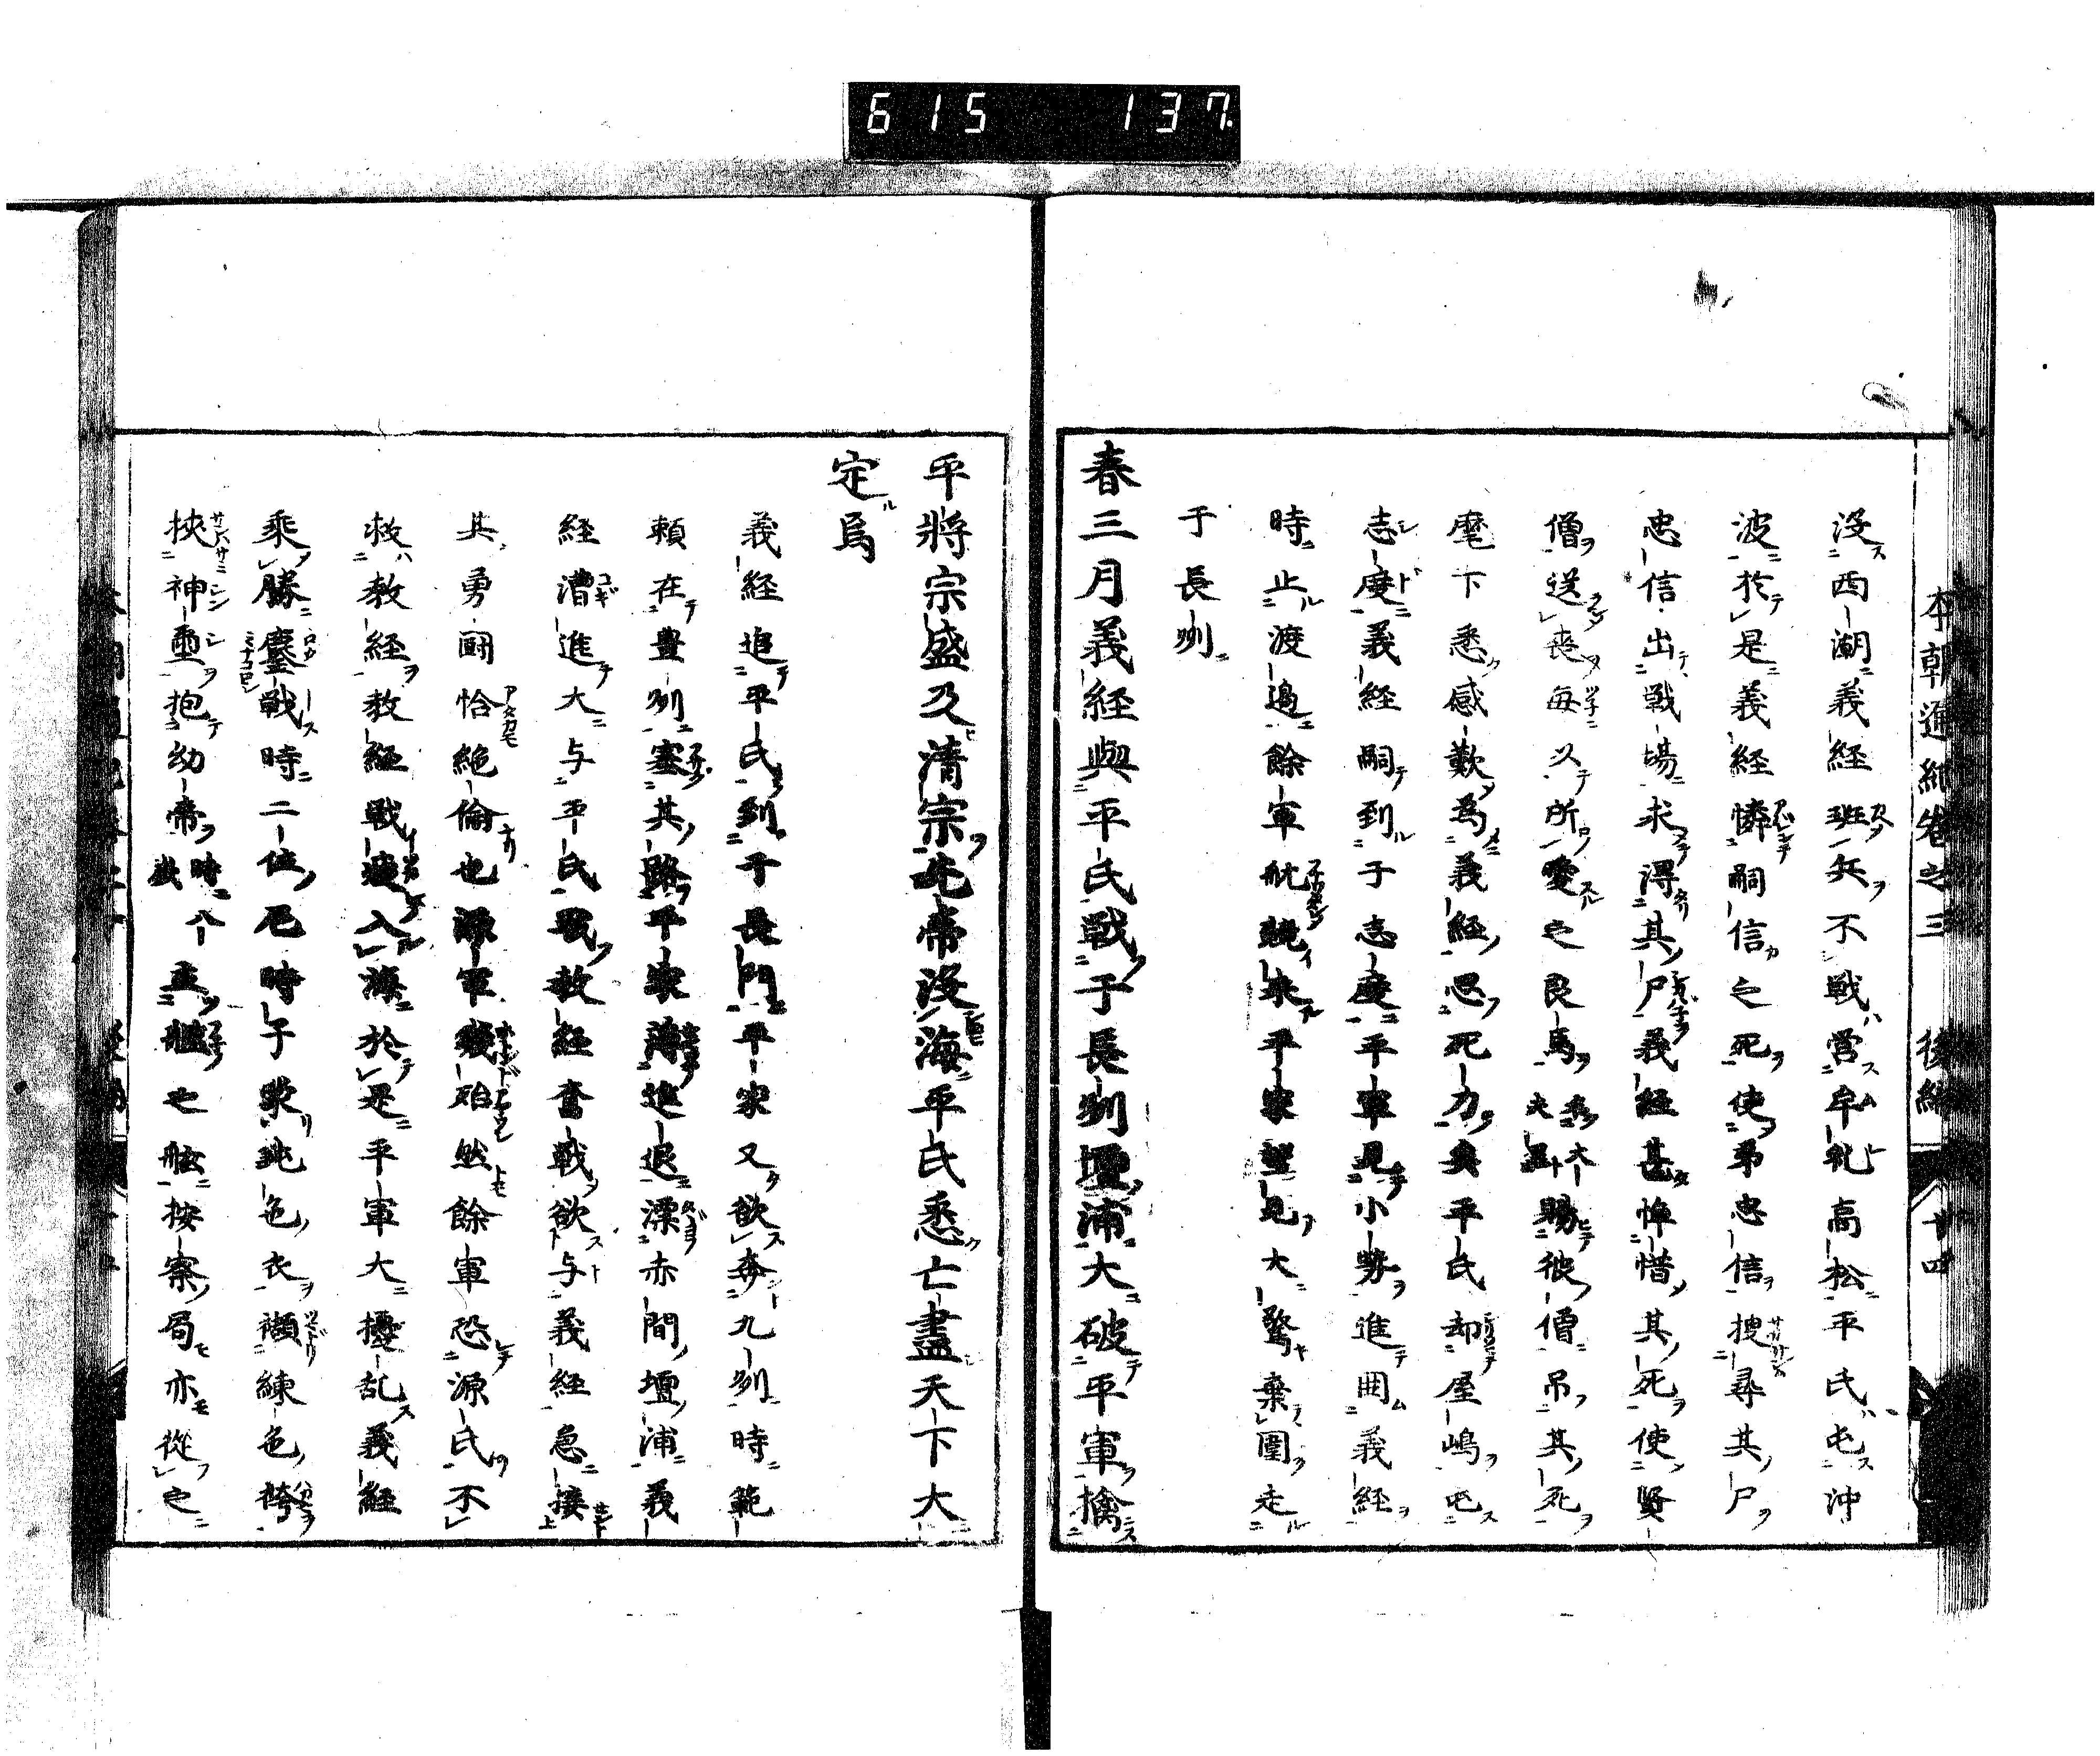 615 137
本朝通紀卷之三 後編 十四
没西潮義経班兵不戦営牟礼高松平氏屯沖
波於是義経憐嗣信之死使弟忠信捜尋其尸
忠信出戦場求得其尸義経甚悼惜其死使賢
僧送喪毎以所愛之良馬 賜彼僧吊其死
麾下悉感歎為義経思死力矣平氏却屋嶋屯
志度義経嗣到于志度平軍見小勢進囲義経
時止渡邉餘軍舩競来平家望見大驚棄圍走
于長州
春三月義経與平氏戦于長州壇浦大破平軍擒
平將宗盛及清宗先帝没海平氏悉亡盡天下大
定焉
義経追平氏到于長門平家又欲奔九州時範
頼在豊州塞其路平家薄進退漂赤間壇浦義
経漕進大与平氏戦教経奮戦欲与義経急接
其勇闘恰絶倫也源軍幾殆然餘軍恐源氏不
救教経教経戦 入海於是平軍大擾乱義経
乗勝鏖戦時二位尼時子蒙鈍色衣襭練色袴
挾神璽抱幼帝時八歳立艫之舷按察局亦從之